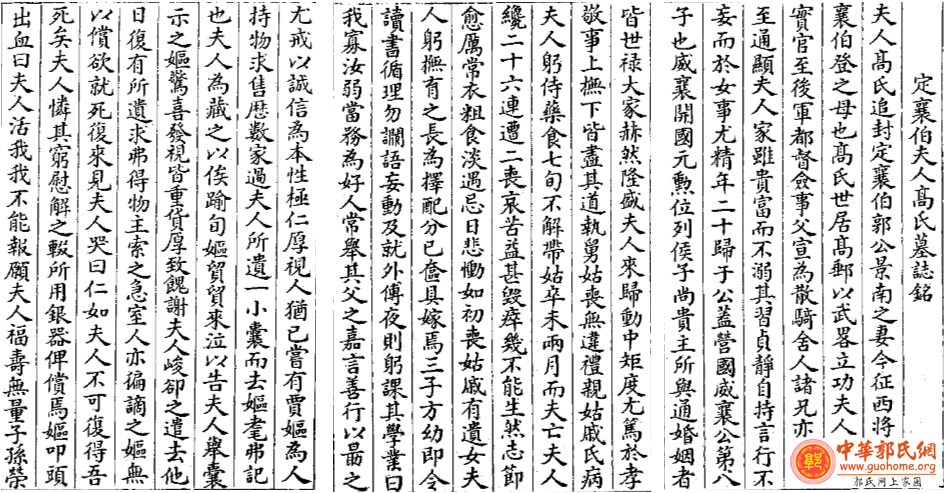 定襄伯夫人髙氏墓誌銘
夫人髙氏追封定襄伯郭公景南之妻今征西將
襄伯登之母也髙氏世居髙郵以武畧立功夫人
實官至後軍都督僉事父宣為散騎舍人諸兄亦
至通顯夫人家雖貴富而不溺其習貞靜自持言行不
妄而於女事尤精年二十歸于公蓋營國威襄公第八
子也威襄開國元勲位列侯子尚貴主所與通婚姻者
皆世禄大家赫然隆盛夫人來歸動中矩度尤篤於孝
敬事上撫下皆盡其道執舅姑喪無違禮親姑戚氏病
夫人躬侍藥食七旬不解帶姑卒未兩月而夫亡夫人
纔二十六連遭二喪哀苦益甚毀瘠幾不能生然志節
愈厲常衣粗食淡遇忌日悲慟如初喪姑戚有遺女夫
人躬撫育之長為擇配分已奩具嫁焉三子方幼即令
讀書循理勿讕語妄動及就外傅夜則躬課其學業曰
我寡汝弱當務為好人常舉其父之嘉言善行以朂之
尤戒以誠信為本性極仁厚視人猶已嘗有賈嫗為人
持物求售歴數家過夫人所遺一小囊而去嫗耄弗記
也夫人為藏之以俟踰旬嫗貿貿來泣以告夫人舉囊
示之嫗驚喜發視皆重貨厚致餽謝夫人峻卻之遣去他
日復有所遺求弗得物主索之急室人亦徧謫之嫗無
以償欲就死復來見夫人哭曰仁如夫人不可復得吾
死矣夫人憐其窮慰解之輟所用銀器俾償焉嫗叩頭
出血曰夫人活我我不能報願夫人福壽無量子孫榮
中華郭氏網
www.guohome.org
郭氏网上家園